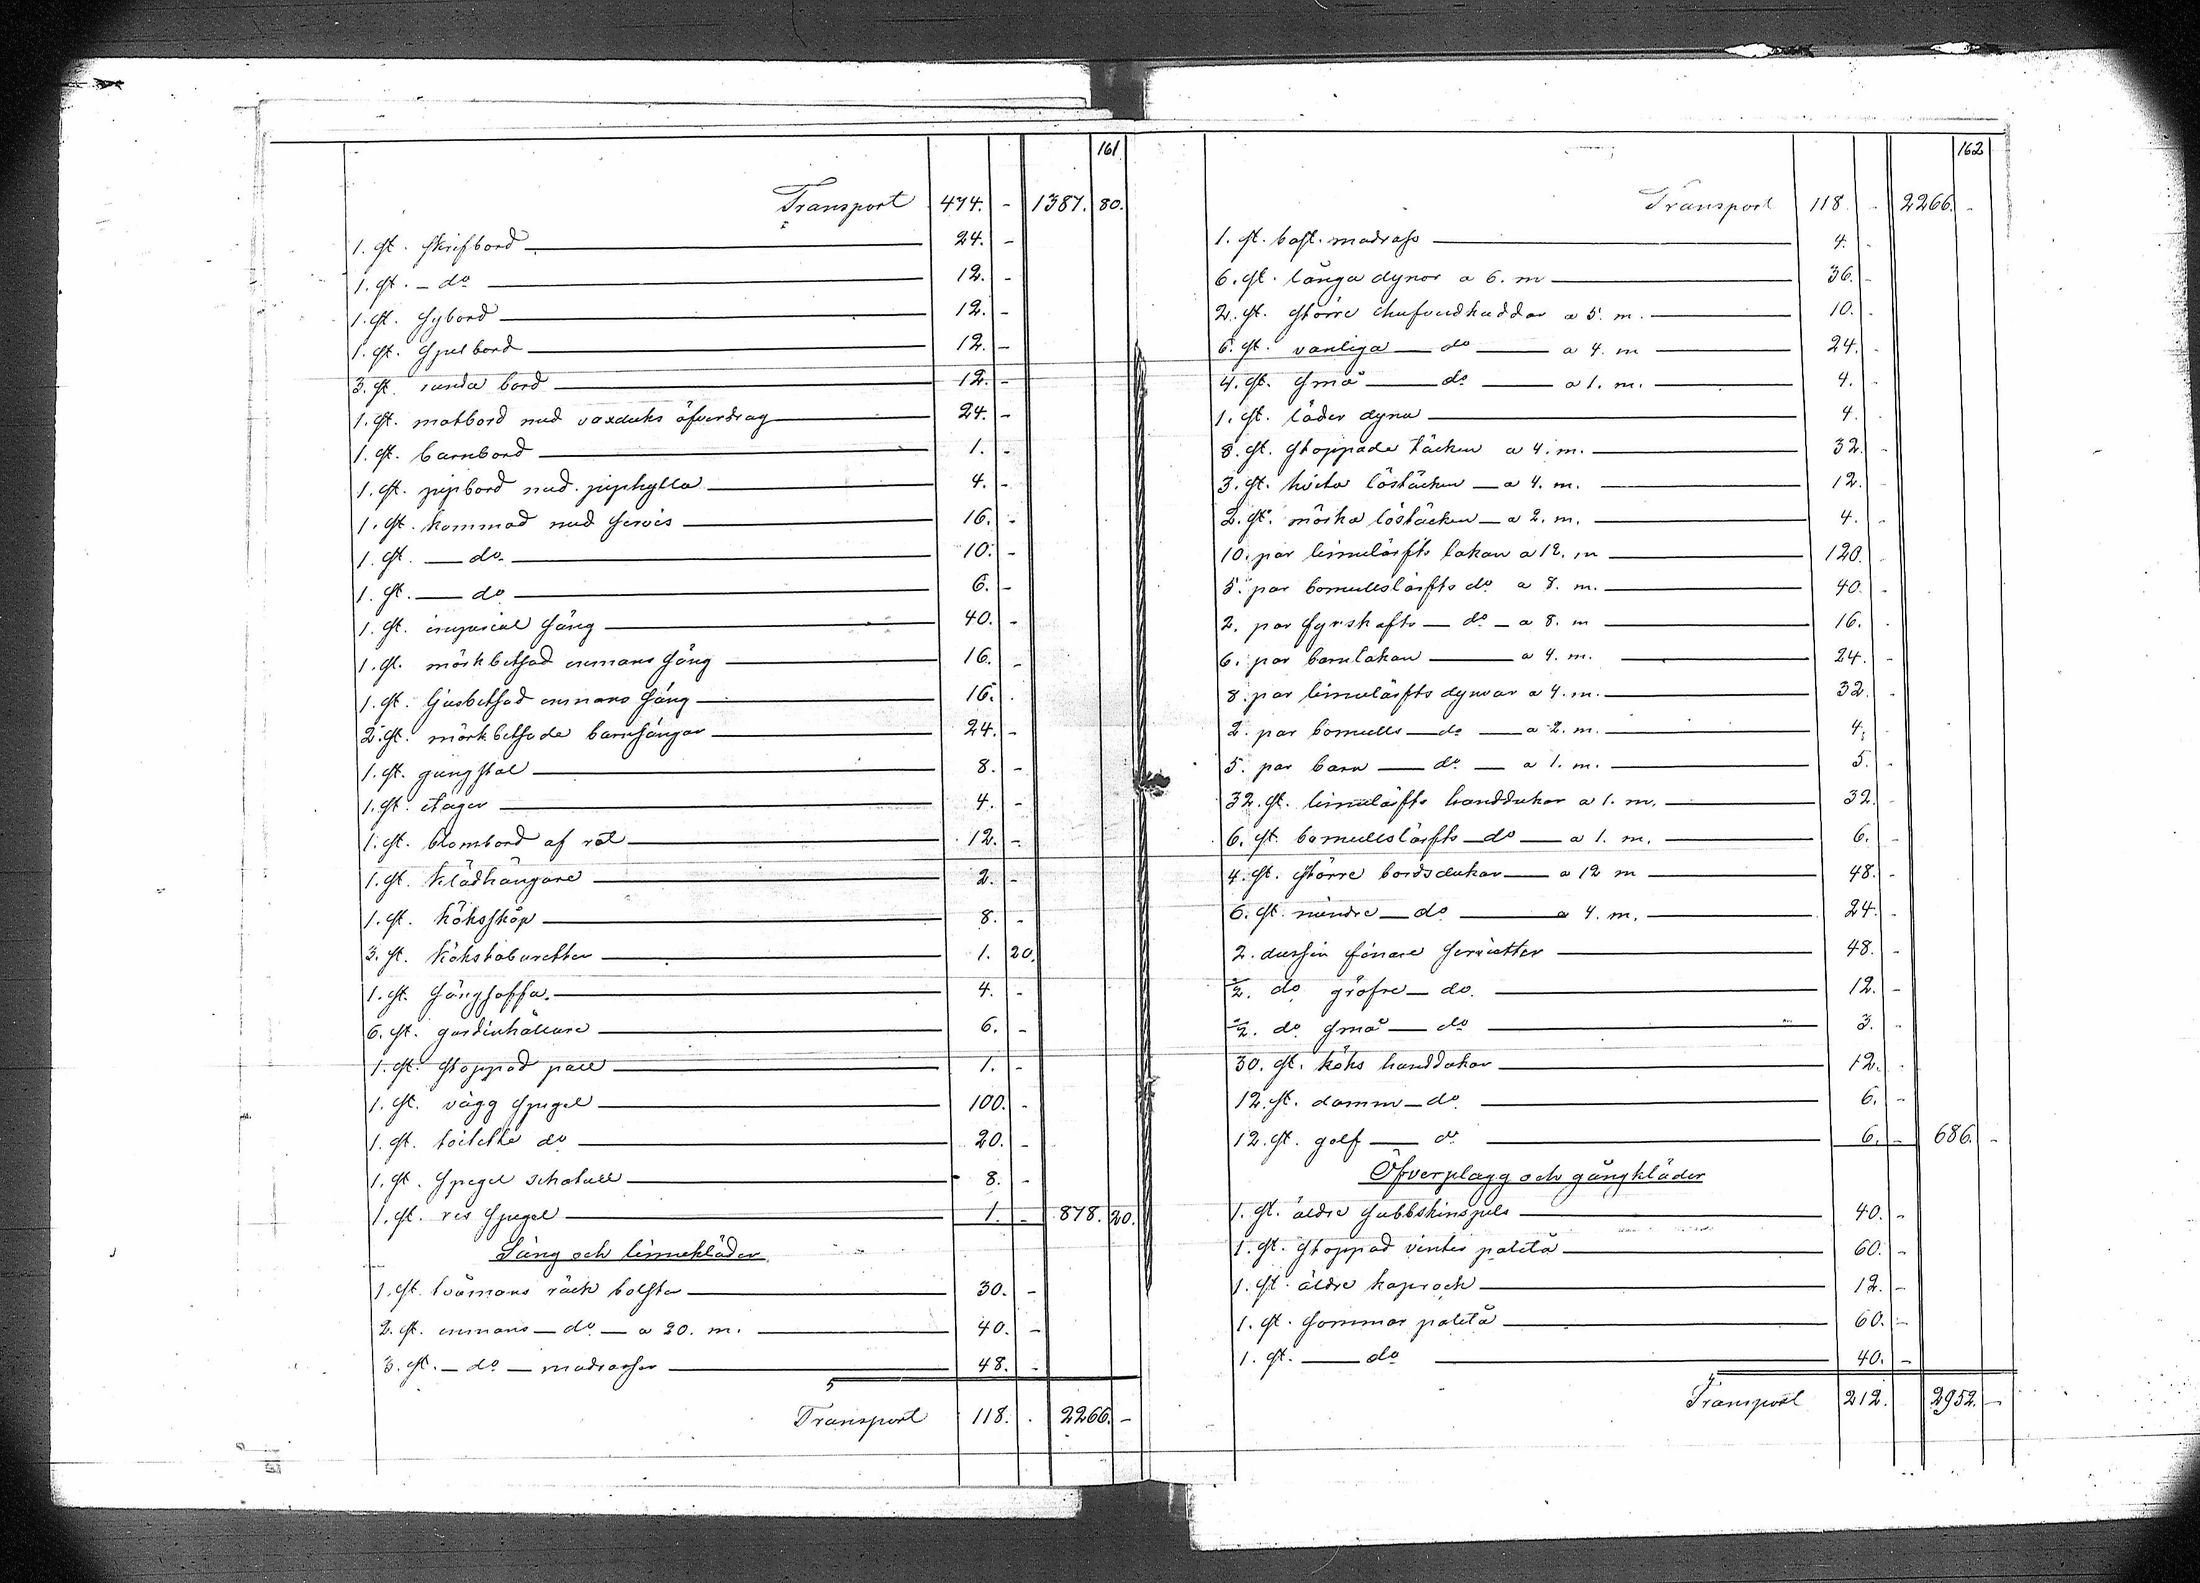 161
Transport 474. - 1387. 80.
1. st. skrifbord 24. -
1. st. - do 12. -
1. st. sybord 12. -
1. st. spelbord 12. -
3. st. runda bord 12. -
1. st. matbord med vaxduks öfverdrag 24. -
1. st. barnbord 1. -
1. st. pipbord med piphylla 4. -
1. st. kommod med servis 16. -
1. st. — do. 10. -
1. st. — do 6. -
1. st. imperial säng 40. -
1. st. mörkbetsad enmans säng 16. -
1. st. ljusbetsad enmans säng 16. -
2. st. mörkbetsade barnsängar 24. -
1. st. gungstol 8. -
1. st. etager 4. -
1. st. blombord af rot 12. -
1. st. klädhängare 2. -
1. st. köksskåp 8. -
3. st. kökstaburetter 1. 20.
1. st. sängsoffa. 4. -
6. st. gardinhållare 6. -
1. st. stoppad pall 1. -
1. st. vägg spegel 100. -
1. st. toilette do 20. -
1. st. spegel schatull 8. -
1. st. res spegel 1. - 878. 20.
Säng och linnekläder
1. st. tvåmans räck bolster 30. -
2. st. enmans — do — a 20. m. 40. -
3. st. — do — madrasser 48. -
Transport 118. - 2266. -
162
Transport 118 - 2266. -
1. st. bast. madrass 4. -
6. st. långa dynor a 6. m 36. -
2. st. större hufvudkuddar a 5. m. 10. -
6. st. vanliga — do — a 4. m 24. -
4. st. små — do — a 1. m. 4. -
1. st. läder dyna 4. -
8. st. stoppade täcken a 4. m. 32. -
3. st. hvita löstäcken — a 4. m. 12. -
2. st. mörka löstäcken — a 2. m. 4. -
10. par linnelärfts lakan a 12. m 120 -
5. par bomullslärfts do a 8. m. 40. -
2. par fyrskafts — do — a 8. m 16. -
6. par barnlakan — a 4. m. 24. -
8. par linnelärfts dynvar a 4. m. 32. -
2. par bomulls — do — a 2. m. 4. -
5. par barn — do — a 1. m. 5. -
32. st. linnelärfts handdukar a 1. m. 32. -
6. st. bomullslärfts — do — a 1. m. 6. -
4. st. större bordsdukar — a 12 m 48. -
6. st. mindre — do — a 4. m. 24. -
2. dussin finare servietter 48. -
1/2. do gröfre — do. 12. -
1/2. do små — do 3. -
30. st. köks handdukar 12. -
12. st. damm — do. 6. -
12. st. golf — do 6. - 686. -
Öfverplagg och gångkläder
1. st. äldre subbskinspels 40. -
1. st. stoppad vinter paletå 60. -
1. st. äldre kaprock 12. -
1. st. sommar paletå 60. -
1. st. — do 40. -
Transport 212. 2952. -